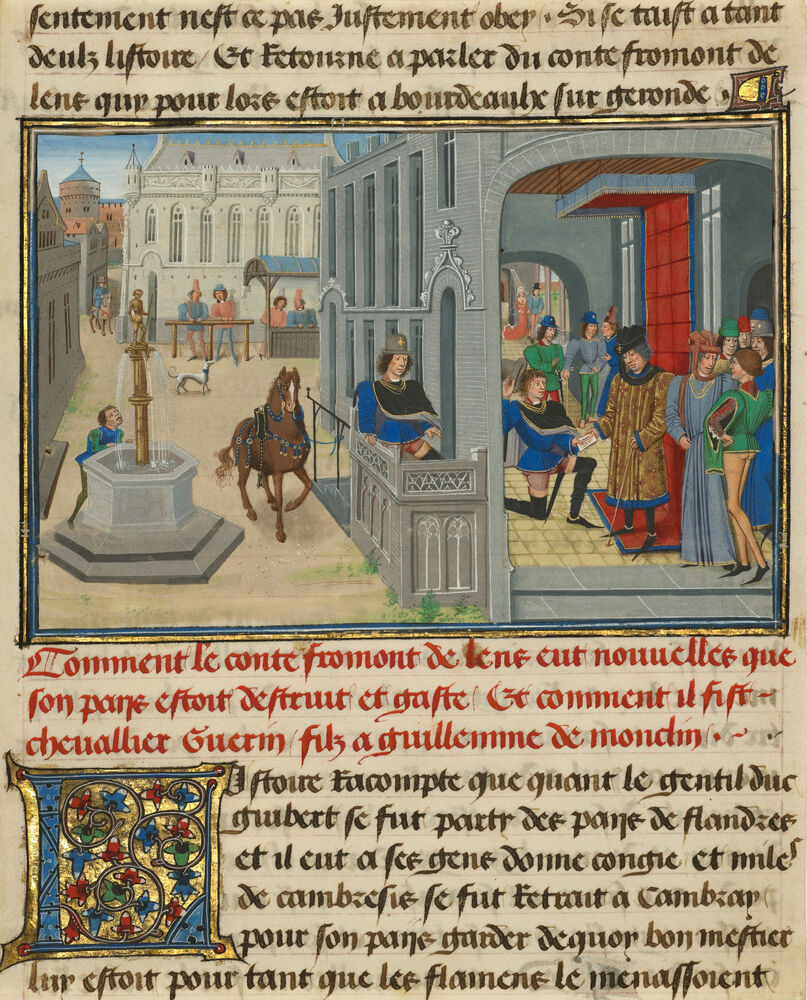 sentement nest ce pas Justement obey. Si se taist a tant
deulx listoire / Et Retourne a parler du conte fromont de
lens quy pour lors estoit a bourdeaulx sur geronde.
Comment le conte fromont de lens eut nouvelles que
son pays estoit destruit et gaste / Et comment il fist
chevallier Guerin / filz a guillemme de monclin.
Listoire Racompte que quant le gentil duc
guibert se fut party des pays de flandres
et il eut a ses gens donne congie et miles
de cambresis se fut Retrait a Cambray
pour son pays garder dequoy bon mestier
luy estoit pour tant que les flamens le menassoient